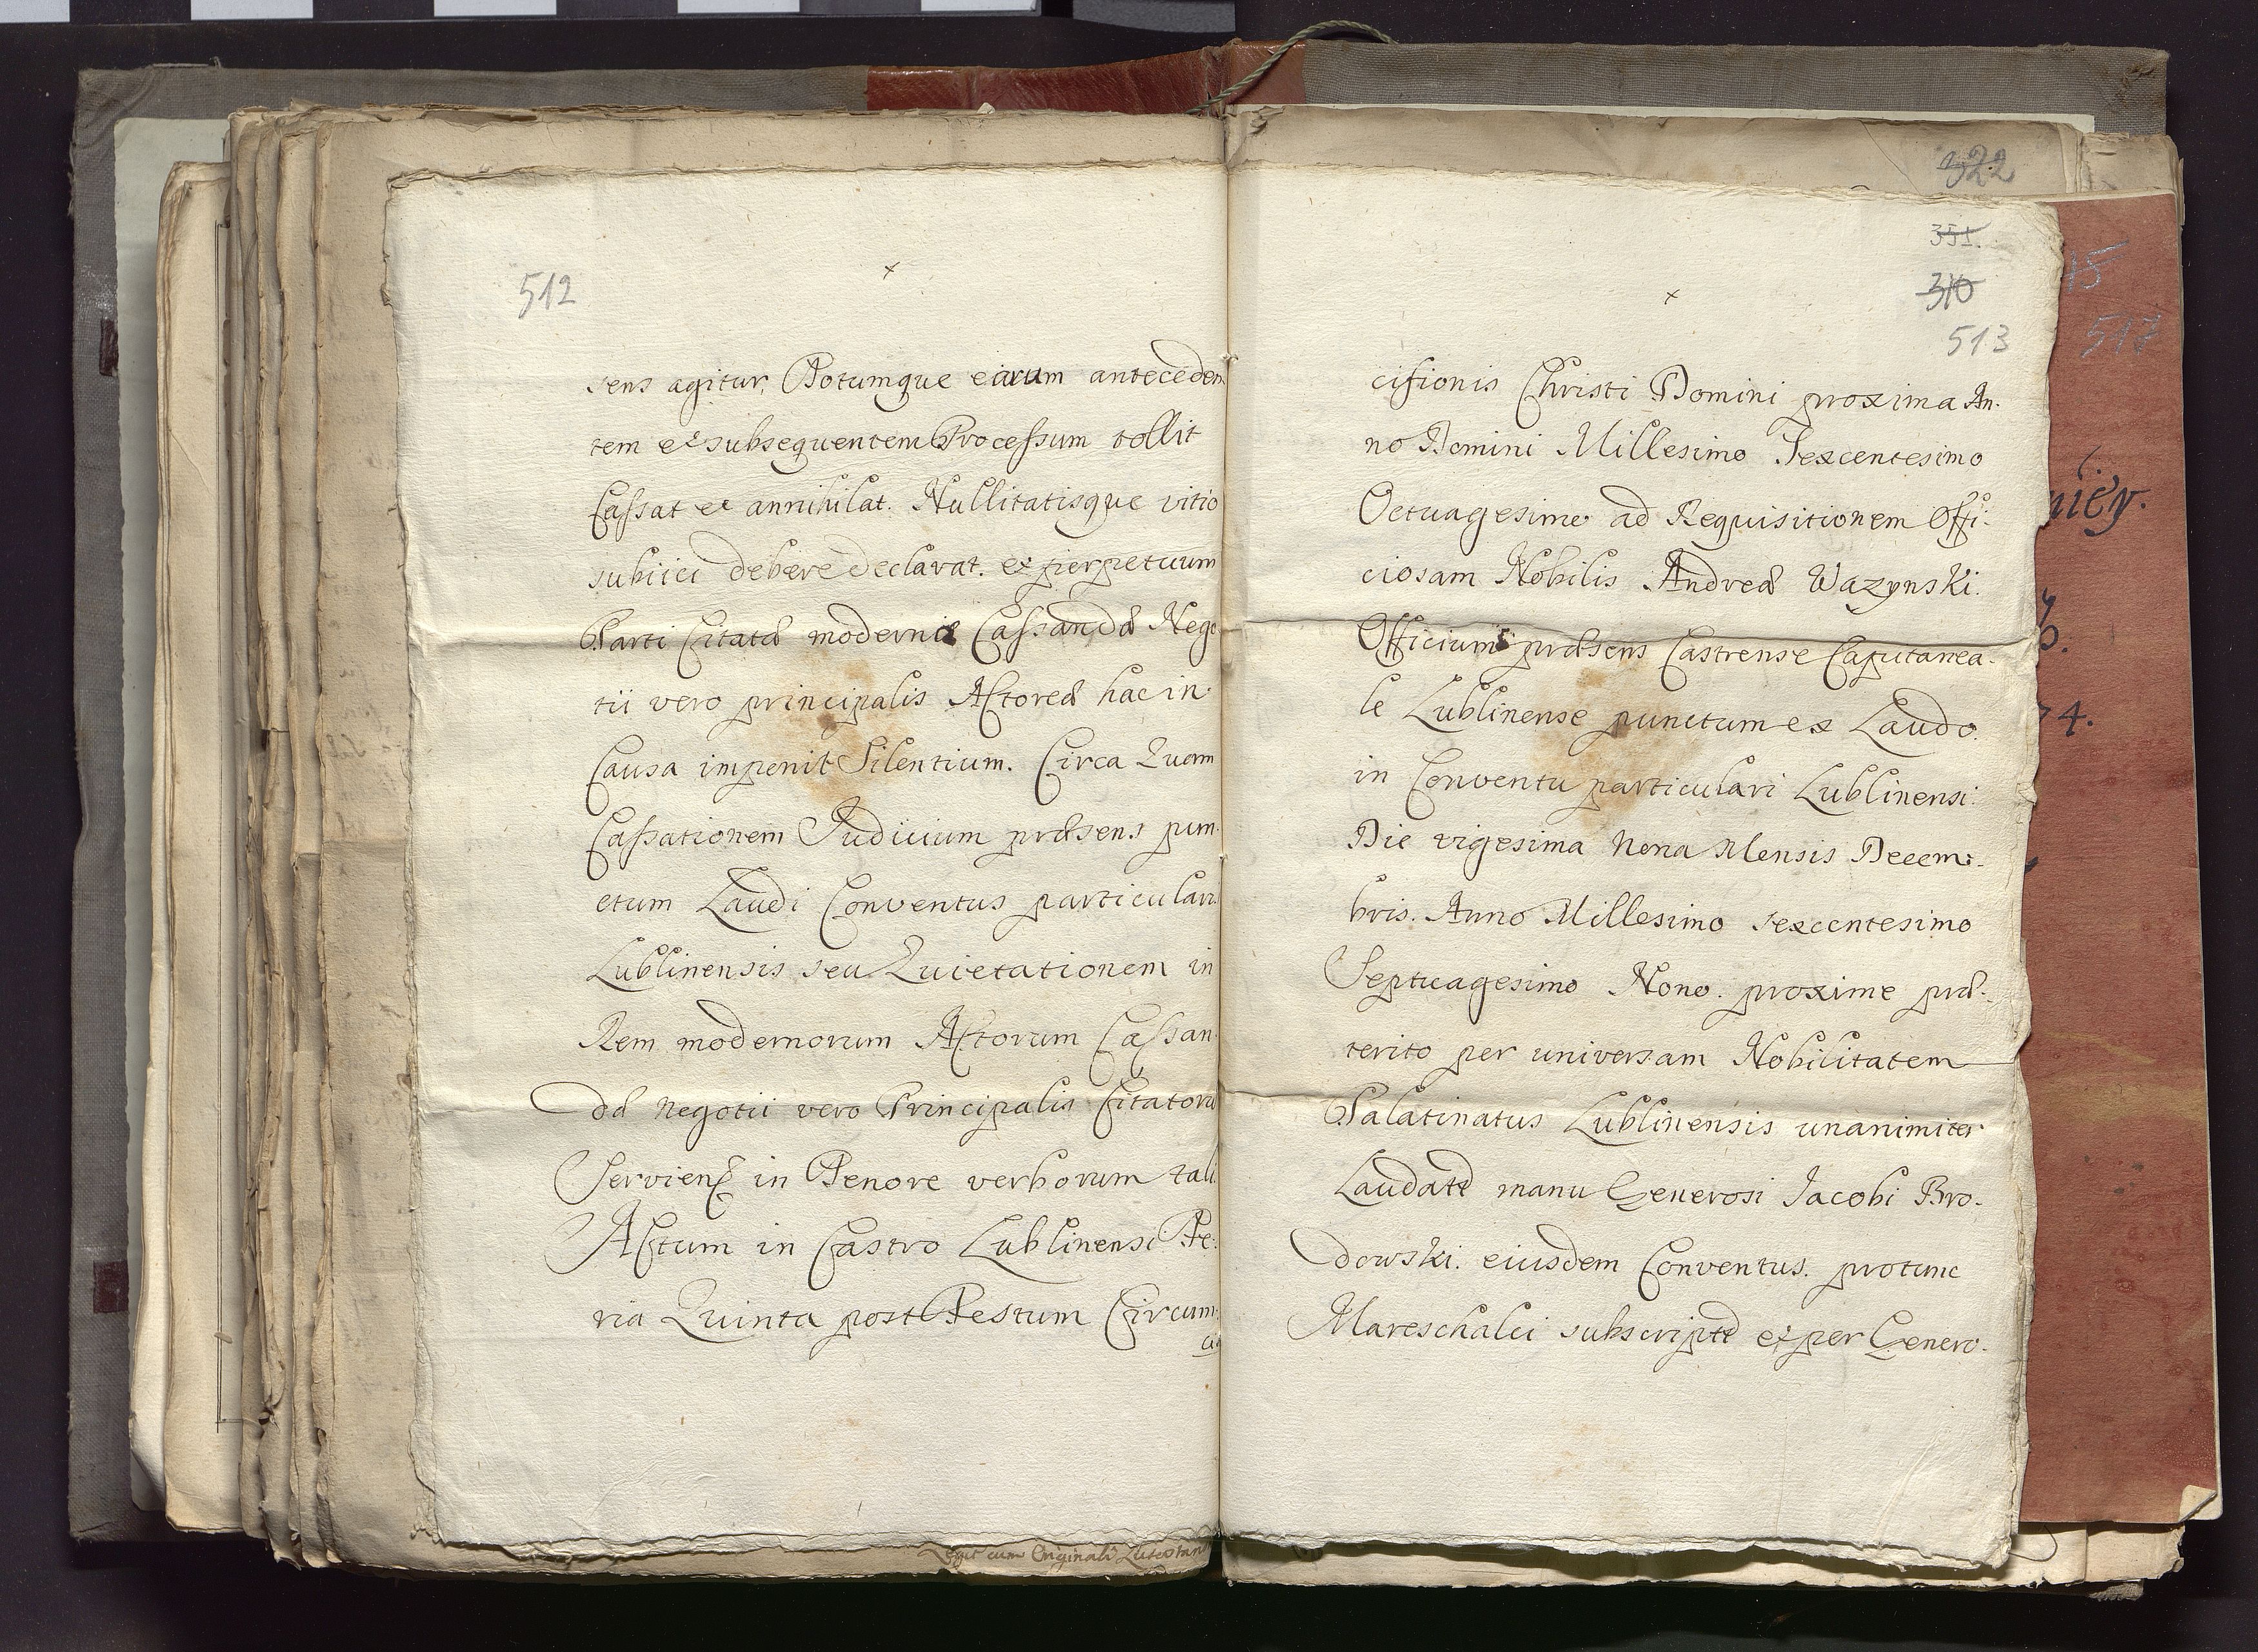 512
×
sens agitur, Totumque earum anteceden
tem et subsequentem Processum tollit
Cassat et annihilat. Nullitatisque vitio
subiici debere declarat. et perpetuum
Parti Citatæ modernæ Cassandæ Nego
tii vero principalis Actoreæ hac in
Causa imponit Silentium. Circa Quam
Cassationem Iudicium præsens pun
ctum Laudi Conventus particularis
Lublinensis seu Quietationem in
Rem modernorum Actorum Cassan
dæ negotii vero Principalis Citatoru
Servien in Tenore verborum tali
Actum in Castro Lublinensi Fe:
ria Quinta post Festum Circum:
cis
Legit cum Originali
322
351.
310
513
×
cisionis Christi Domini proxima An-
no Domini Millesimo Sexcentesimo
Octuagesimo ad Requisitionem Offi-
ciosam Nobilis Andreæ Wazynski.
Officium præsens Castrense Capitanea-
le Lublinense punctum ex Laudo.
in Conventu particulari Lublinensi:
Die vigesima Nona Mensis Decem:
bris. Anno Millesimo sexcentesimo
Septuagesimo Nono. proxime præ-
terito per universam Nobilitatem
Palatinatus Lublinensis unanimiter
Laudate manu Generosi Jacobi Bro-
dowski. eiusdem Conventus. protunc
Mareschalci subscripte et per Genero-
15
517
niey.
74.